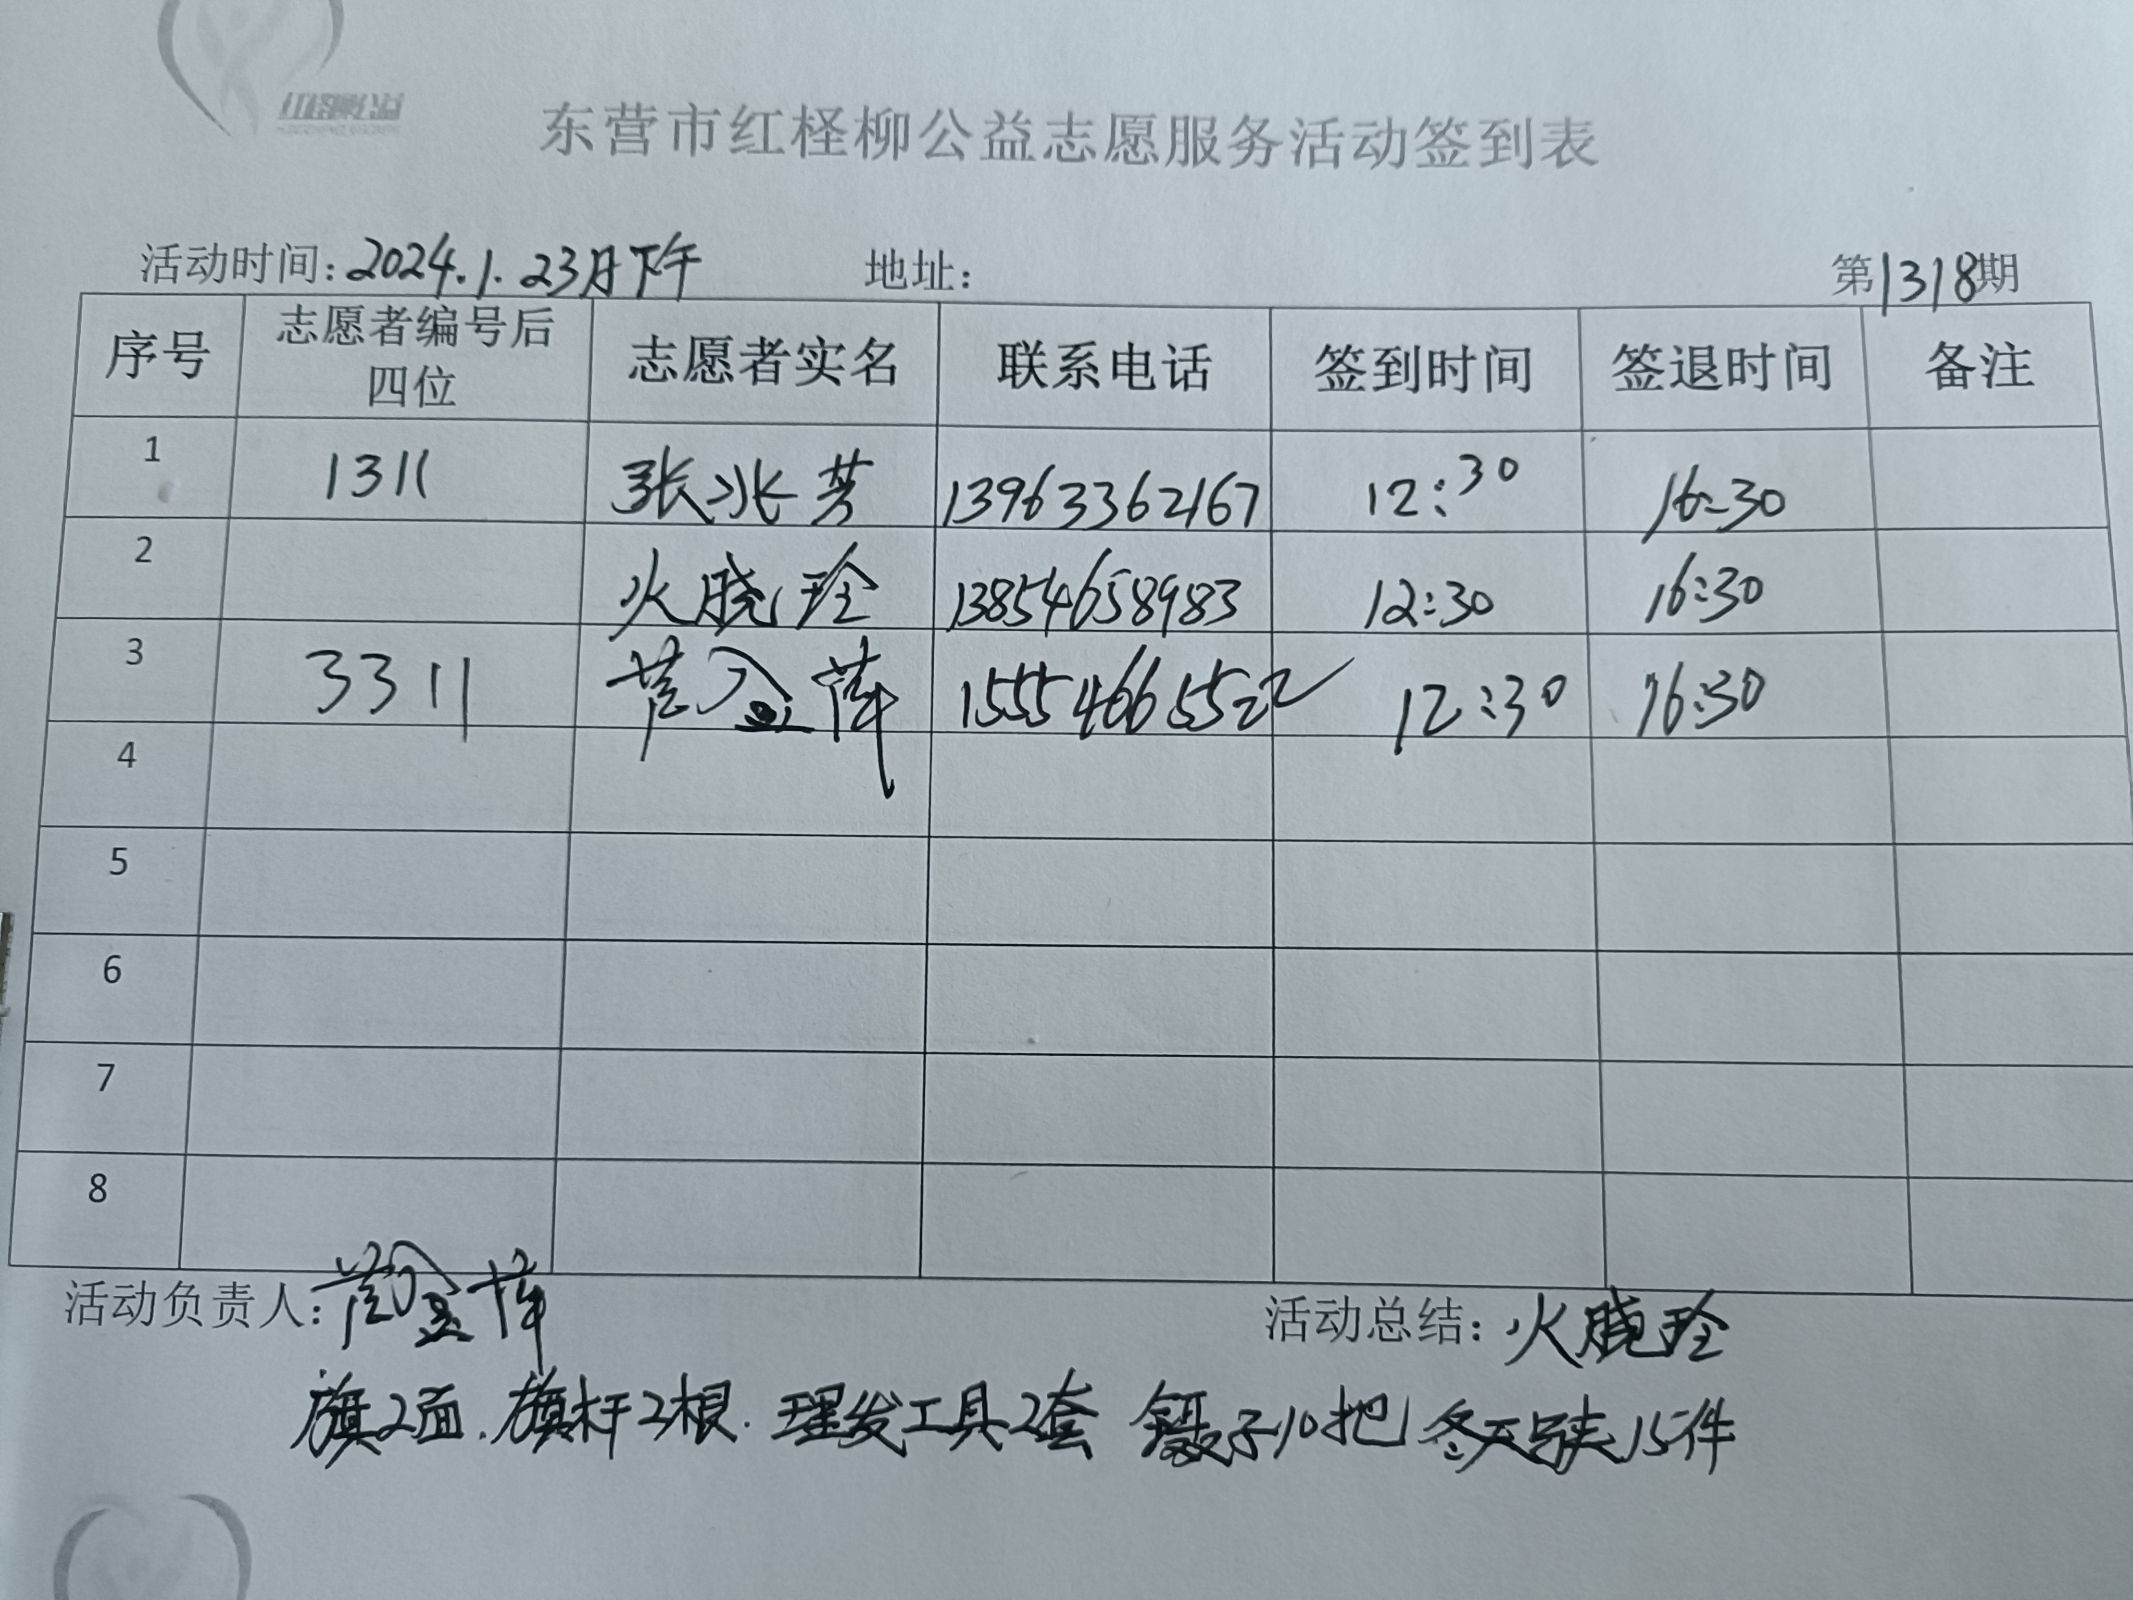 红柽柳公益
东营市红柽柳公益志愿服务活动签到表
活动时间：2024.1.23月下午 地址： 第1318期
序号 志愿者编号后四位 志愿者实名 联系电话 签到时间 签退时间 备注
1 1311 张兆芳 13963362167 12:30 16:30
2 火晓玲 13854658983 12:30 16:30
3 3311 15554665522 12:30 16:30
4
5
6
7
8
活动负责人： 活动总结：火晓玲
旗2面.旗杆2根.理发工具2套 镊子10把 冬天 15件